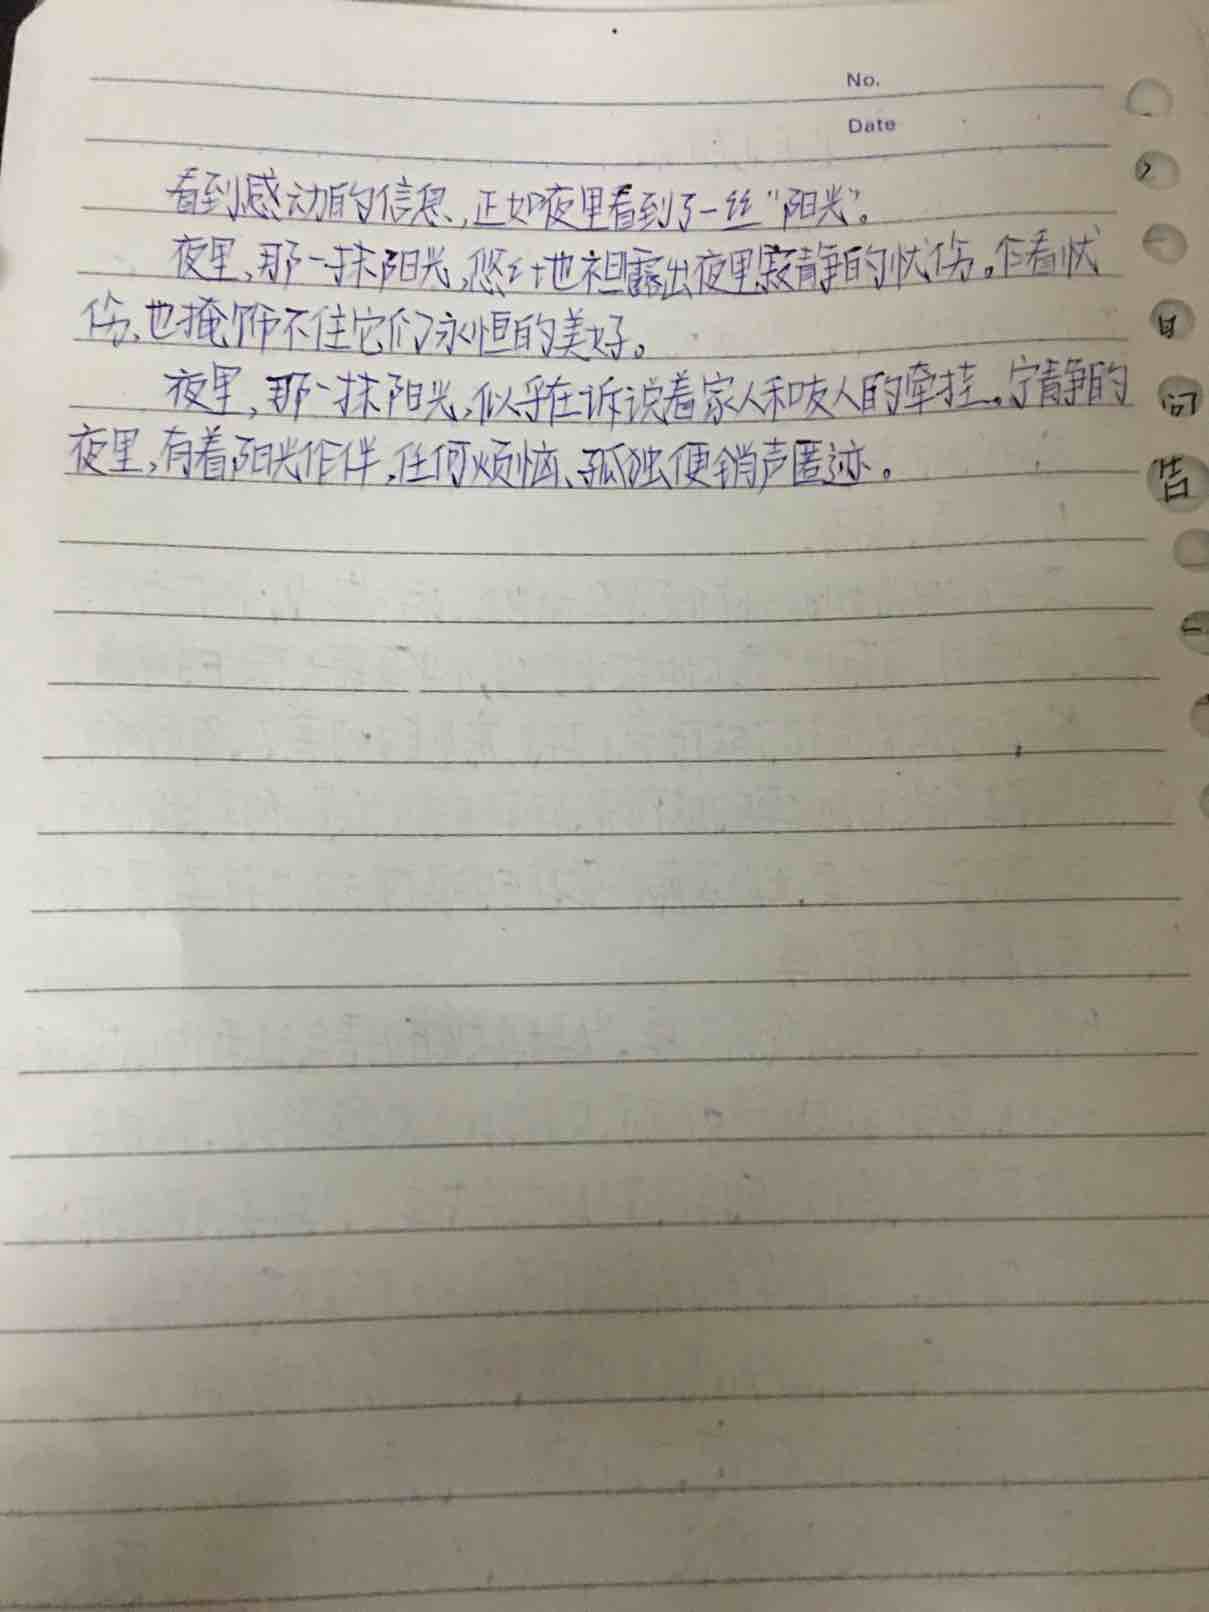 No.
Date
看到感动的信息,正如夜里看到了一丝“阳光”。
夜里,那一抹阳光,悠悠地袒露出夜里寂静的忧伤。乍看忧
伤,也掩饰不住它们永恒的美好。
夜里,那一抹阳光,似乎在诉说着家人和友人的牵挂。宁静的
夜里,有着阳光作伴,任何烦恼、孤独便销声匿迹。
问
告